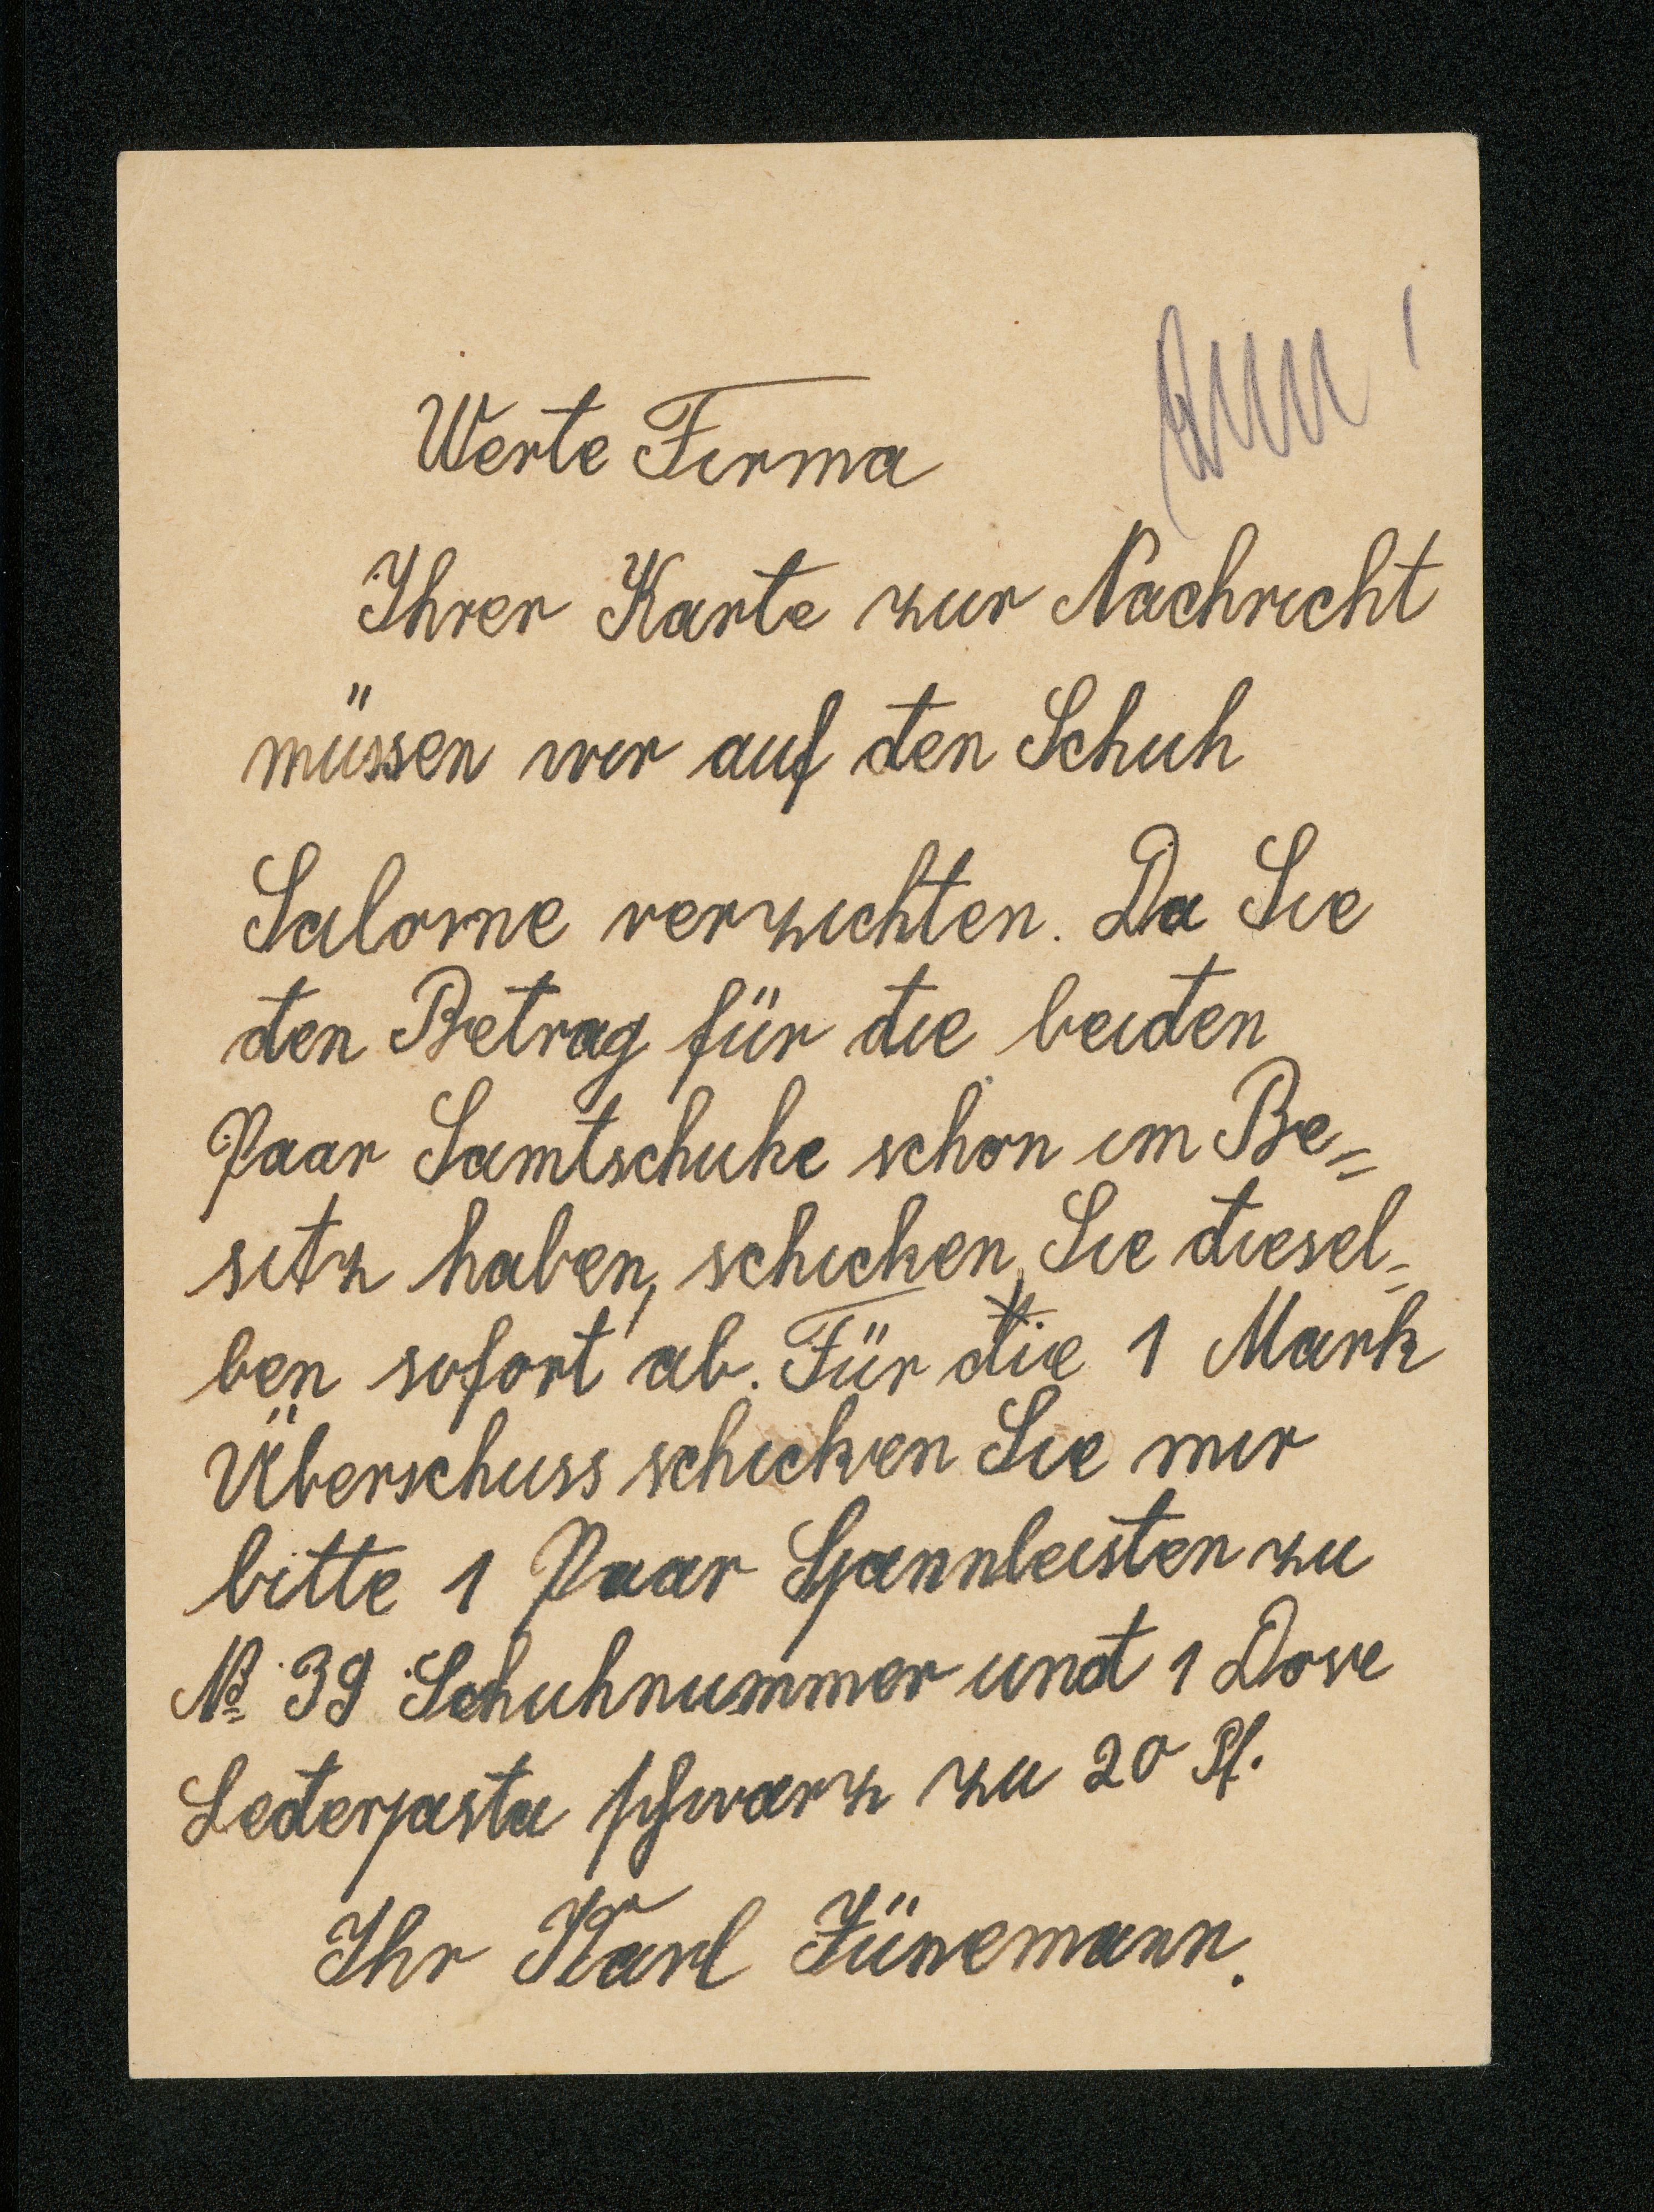 Werte Firma
Ihrer Karte zur Nachricht
müssen wir auf den Schuh
Salome verzichten. Da Sie
den Betrag für die beiden
Paar Samtschuhe schon im Be=
sitz haben, schicken, Sie diesel=
ben sofort ab. Für die 1 Mark
Überschuss schicken Sie mir
bitte 1 Paar Spannleisten zu
No 39 Schuhnummer und 1 Dose
Lederpasta schwarz zu 20 Pf.
Ihr Karl Jünemann.